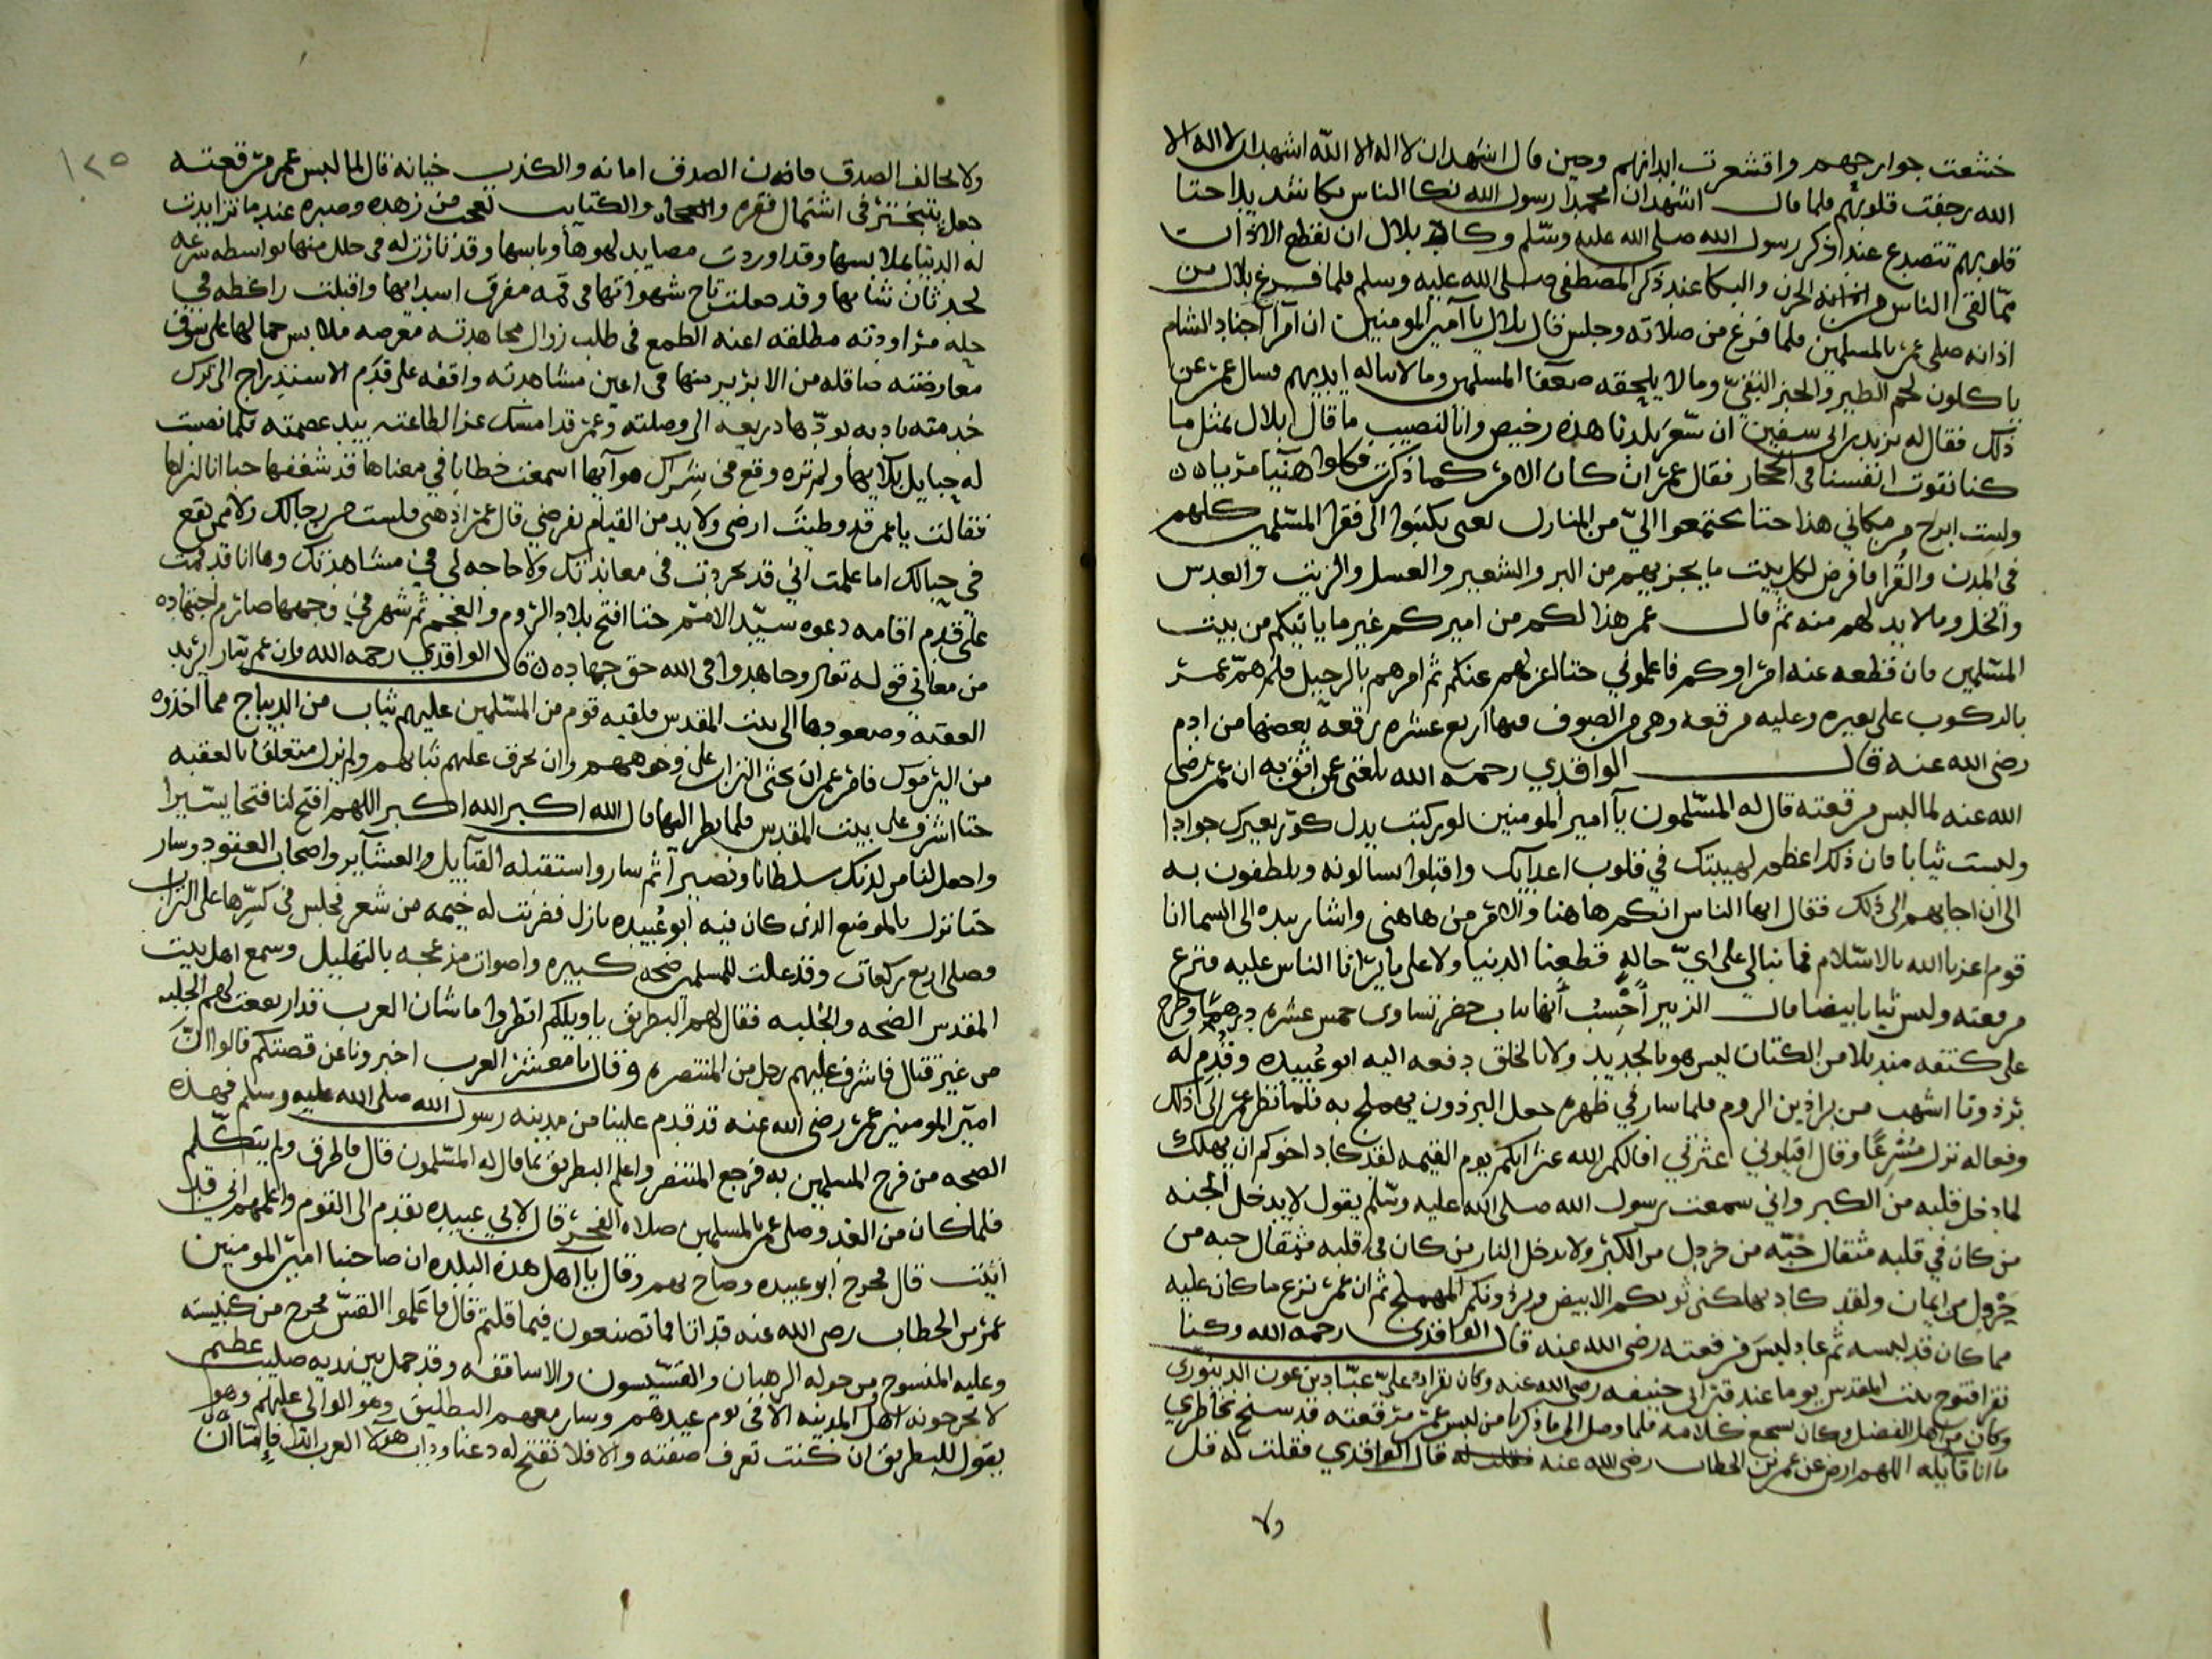 خشعت جوارحهم واقشعرت ابدانهم وحين قال اشهد ان لا اله الا الله اشهد ان لا اله الا
الله رجفت قلوبهم فلما قال اشهد ان محمدا رسول الله بكا الناس بكا شديدا حتا
قلوبهم تتصدع عند ذكر رسول الله صلى الله عليه وسلم وكاد بلال ان يقطع الاذان
مما لقى الناس من الحزن والبكا عند ذكر المصطفى صلى الله عليه وسلم فلما فرغ بلال من
اذانه صلى عمر بالمسلمين فلما فرغ من صلاته وجلس قال بلال يا آمير المومنين ان آمرآ اجناد الشام
ياكلون لحم الطير والخبز النقيّ وما لا يلحقه ضعفا المسلمين وما لا تناله ايديهم فسال عمر عن
ذلك فقال له يزيد بن ابى سفين ان سعر بلدنا هذه رخيص وانا لنصيب ما قال بلال بمثل ما
كنا نقوت انفسنا فى الحجاز فقال عمر ان كان الامر كما ذكرت فكلوا هنيا مريا
ولست ابرح من مكاني هذا حتا تجتمعوا اليّ من المنازل لعى بكتبوا الى فقرا المسلمين كلهم
فى المدن والقرا فافرض لكل بيت ما يجزيهم من البر والشعير والعسل والزيت والعدس
والخل وما لابد لهم منه ثم قال عمر هذا لكم من اميركم غير ما ياتيكم من بيت
المسلمين فان قطعه عنه امراوكم فاعلموني حتا اعزلهم عنكم ثم امرهم بالرحيل فلم هم عمر
بالركوب على بعيره وعليه مرقعة وهي من الصوف فيها اربع عشره رقعة بعضها من ادم
رضى الله عنه قال الواقدي رحمه الله بلغنى عمن اثق به ان عمر رضى
الله عنه لما لبس مرقعته قال له المسلمون يآ امير المومنين لو ركبت بدل بعيرك جوادا
ولبست ثيابا فان ذلك اعظم لهيبتك في قلوب اعدآيك واقبلوا يسالونه ويلطفون به
الى ان اجابهم الى ذلك فقال ايها الناس انكم هاهنا والامر من هاهنى واشار بيده الى السما انا
قوم اعزنا الله بالاسلام فما نبالي على ايّ حالة قطعنا الدنيا ولا على ما يرانا الناس عليه فنزع
مرقعته ولبس ثيابا بيضا قال الزبير أحسب أنها ثياب مصر تساوى خمس عشره درهما وطرح
على كتفه منديلا من الكتان ليس هو بالجديد ولا بالخلق دفعه اليه ابو عبيده وقدم له
برذونا اشهب من براذين الروم فلما سار في ظهره جعل البرذون يهملج به فلما نظر عمر الى ذلك
وفعاله نزل مسرعا وقال اقيلوني عثرتي اقالكم الله عثراتكم يوم القيمه لقد كاد اخوكم ان يهلك
لما دخل قلبه من الكبر واني سمعت رسول الله صلى الله عليه وسلم يقول لا يدخل الجنه
من كان في قلبه مثقال حبّه من خردل من الكبر ولا يدخل النار من كان في قلبه مثقال حبه من
خردل من ايمان ولقد كاد يهلكنى ثوبكم الابيض وبرذونكم المهملج ثم ان عمر نزع ما كان عليه
مما كان قد لبسه ثم عاد لبس مرقعته رضى الله عنه قال الواقدى رحمه الله وكنا
نقرا فتوح بيت المقدس يوما عند قبر ابى حنيفه رضى الله عنه وكان يقرا عليّ عبّاد بن عون الدينوري
وكان من اهل الفضل وكان يسمع كلامه فلما وصل الى ما ذكرنا من لبس عمر مرقعته قد سنح بخاطري
ما انا قايله اللهم ارض عن عمر بن الخطاب رضى الله عنه قال الواقدي فقلت له قل
ولا
١٢٥
ولا تخالف الصدق فان الصدق امانه والكذب خيانه قال لما لبس عمر مرقعته
جعل يتبختر فى اشتمال فقره والكتايب تعجب من زهده وصبره عند ما تزايدت
له الدنيا بملابسها وقد اوردت مصايد لهوها وباسها وقد نازت له فى حلل منها بواسطه شرعه
لحدثان شبابها وقد جعلت تاج شهواتها فى قمه مفرق اسدابها واقبلت رافظه في
حله مراودته مطلقه اعنة الطمع فى طلب زوال مجاهدته معرضه ملابس جمالها على سوق
معارضته صاقله من الابريز منها فى اعين مشاهدته واقفه على قدم الاستدراج الى ترك
خدمته باديه بودّها دريعه الى وصلته وعمر قد امسك عنا الطاعته بيد عصمته فلما نصبت
له حبايل بلايها ولم تره وقع فى شرك هوآيها اسمعت خطابا في معناها قد شغفها حبا انا لنراها
فقالت يا عمر قد وطيت ارضى ولابد من القيام بفرضي قال عمر اذهبى فلست من رجالك ولا ممن يقع
في حبالك اما علمت اني قد تجردت فى معاندتك ولا حاجه لي في مشاهدتك وها انا قد قمت
على قدم اقامه دعوه سيّد الامم حتا افتح بلاد الروم والعجم ثم شهر في وجهها صارم اجتهاده
من معاني قوله تعالى وجاهدوا فى الله حق جهاده قال الواقدي رحمه الله وان عمر سار يريد
العقبة وصعودها الى بيت المقدس فلقيه قوم من المسلمين عليهم ثياب من الديباج مما اخذوه
من اليرموك فامر عمر ان يحثى التراب على وجوههم وان تحرق عليهم ثيابهم ولم يزل متعلقا بالعقبه
حتا اشرف على بيت المقدس فلما نظر اليها قال الله اكبر الله اكبر اللهم افتح لنا فتحا يسيرا
واجعل لنا من لدنك سلطانا ونصيرآ ثم سار واستقبله القبآيل والعشآير واصحاب العقود وسار
حتا نزل بالموضع الذى كان فيه أبو عبيده نازل فضربت له خيمه من شعر فجلس فى كسرها على التراب
وصلى اربع ركعات وقد علت للمسلمين ضجه كبيره واصوات مزعجه بالتهليل وسمع اهل بيت
المقدس الضجه والجلبه فقال لهم البطريق ياويلكم انظروا ما شان العرب قد ارتفعت لهم الجلبه
من غير قتال فاشرف عليهم رجل من المنتصره وقال يا معشر العرب اخبرونا عن قصتكم قالوا انّ
اميّر المومنين عمر رضى الله عنه قد قدم علينا من مدينه رسول الله صلى الله عليه وسلم فهذه
الضجه من فرح المسلمين به فرجع المنتصر واعلم البطريق بما قال له المسلمون قال فاطرق ولم يتكلم
فلما كان من الغد وصلى عمر بالمسلمين صلاه الفجر قال لابي عبيده تقدم الى القوم واعلمهم اني قد
اتيت قال فخرج ابو عبيده وصاح بهم وقال يا اهل هذه البلده ان صاحبنا اميّر المومنين
عمر بن الخطاب رضى الله عنه قد اتا فما تصنعون فيما قلتم قال فاعلموا القس فخرج من كنيسته
وعليه المسوح ومن حوله الرهبان والقسيسون والاساقفه وقد حمل بين يديه صليب عظيم
لا يخرجونه اهل المدينه الا فى يوم عيدهم وسار معهم البطليق وهو الوالى عليهم وهو
يقول للبطريق ان كنت تعرف صفته والا فلا تفتح له دعنا وهولآ العرب فإمّا أن